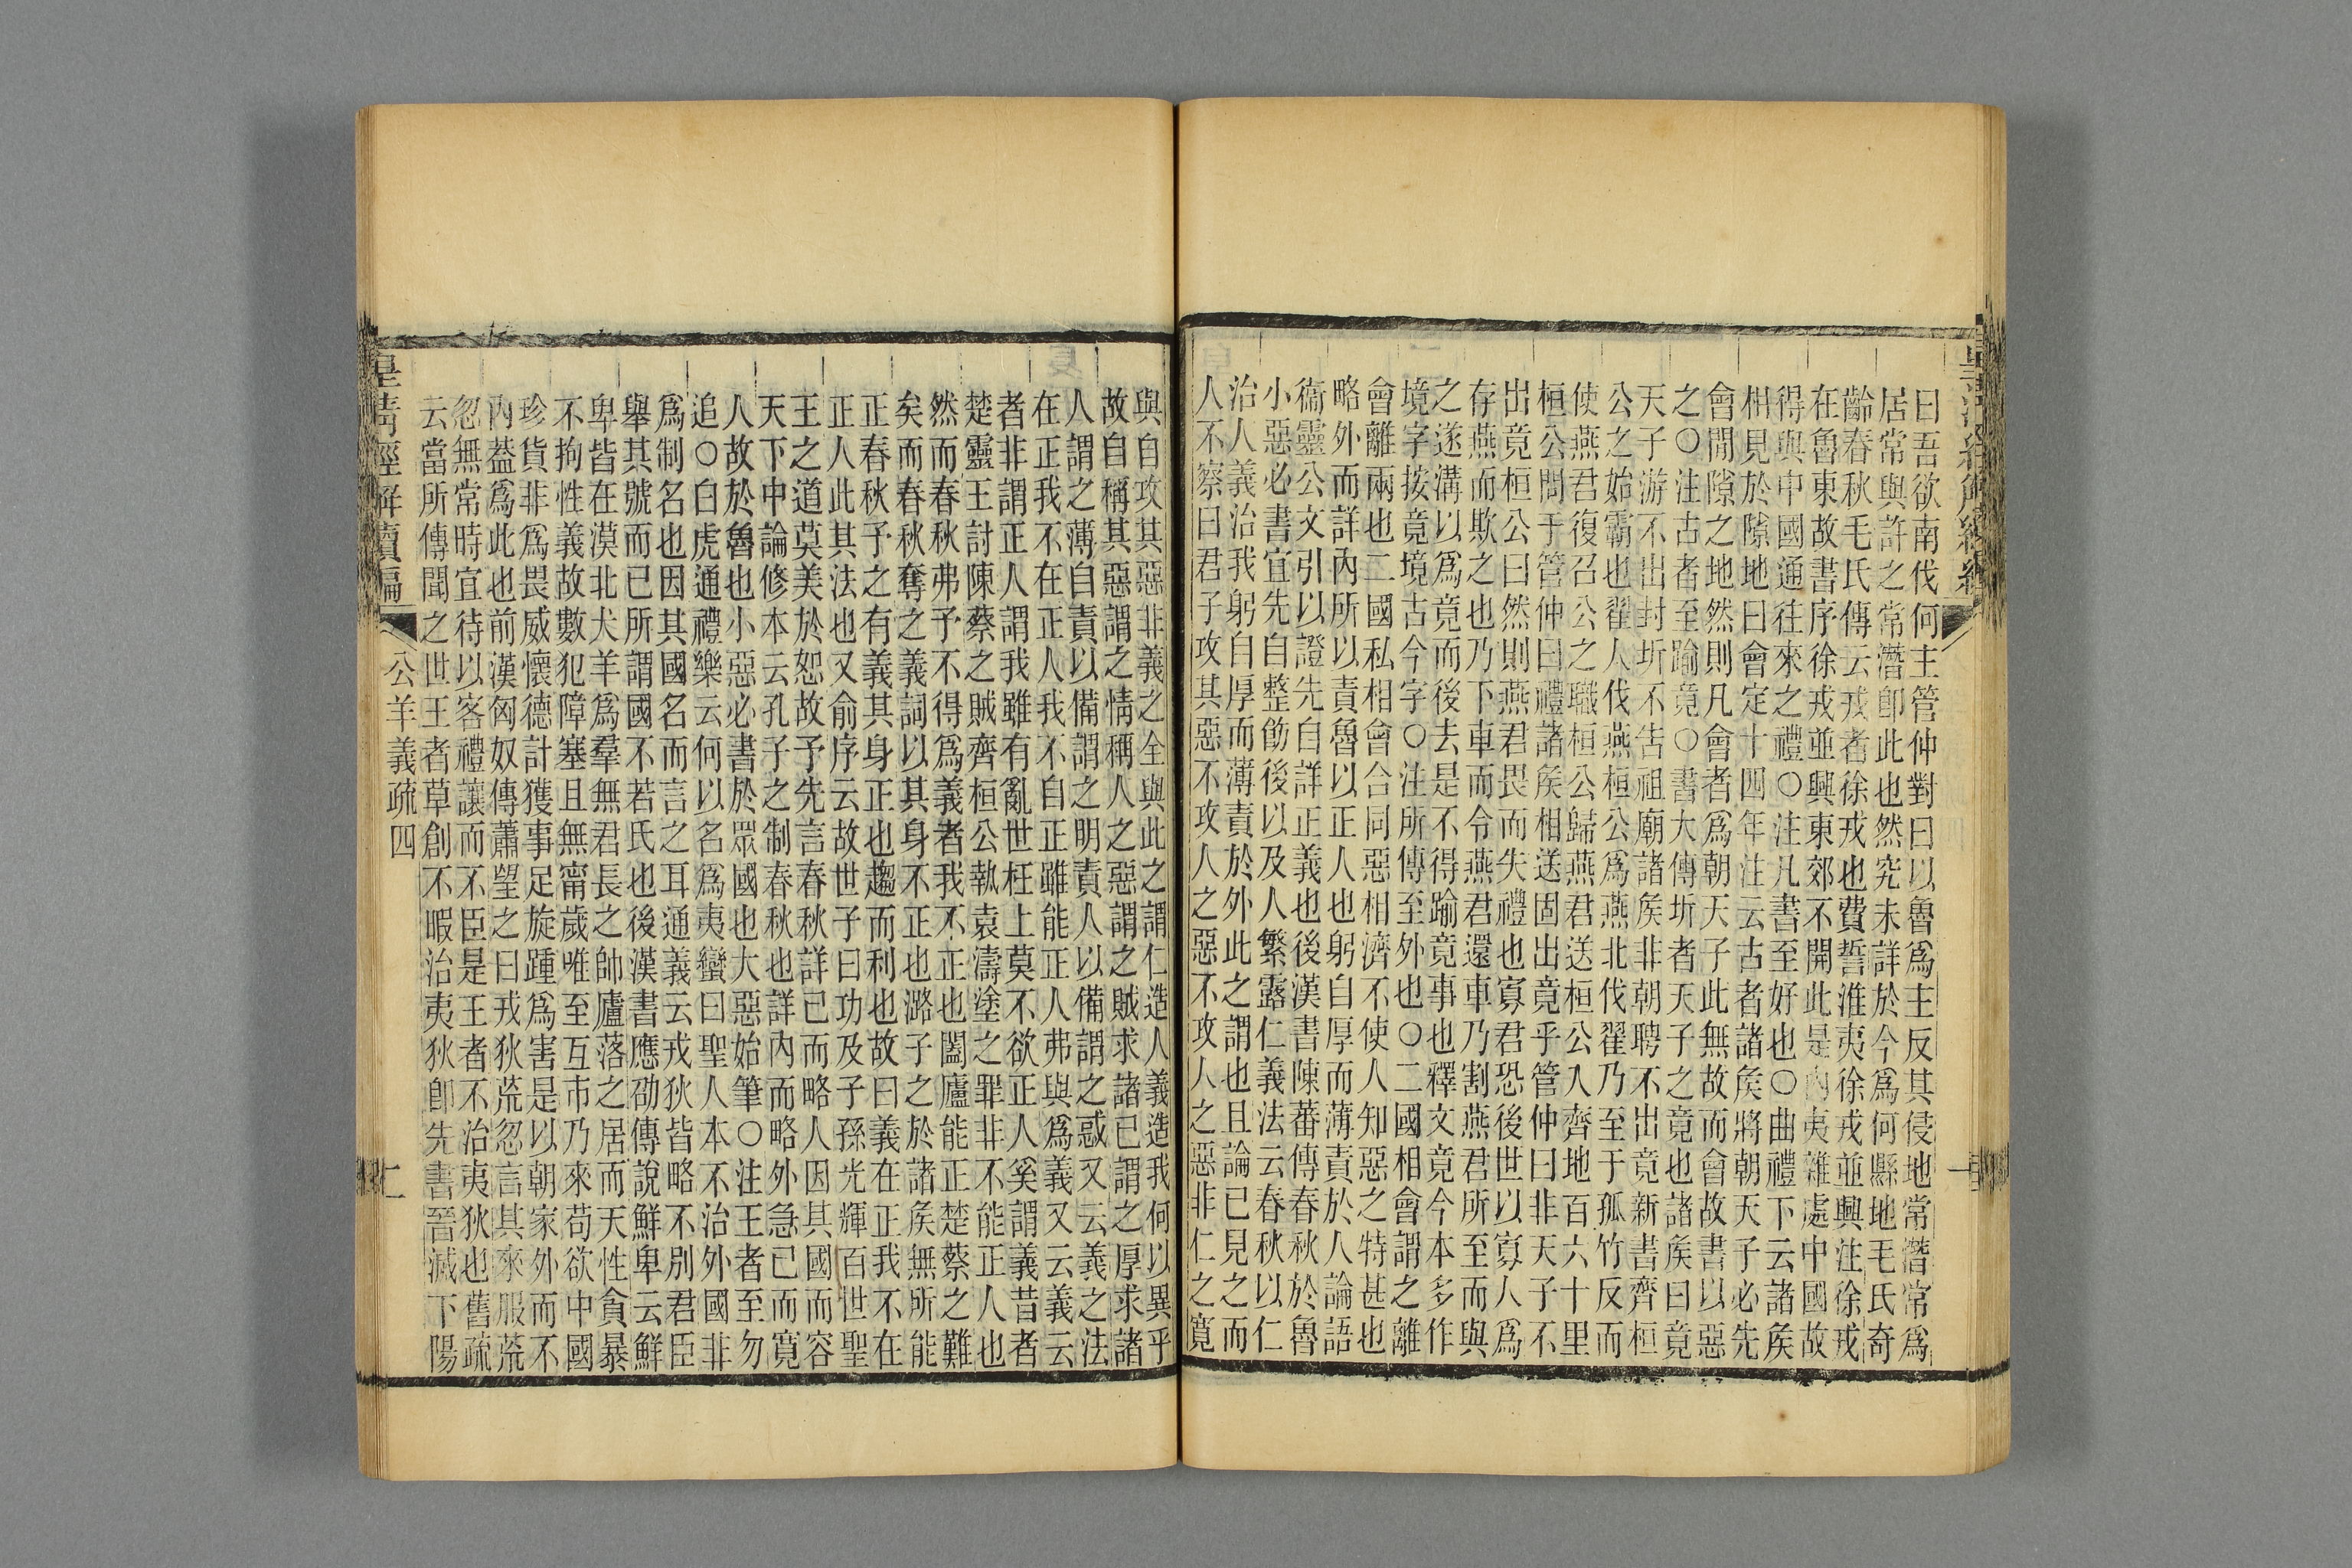 曰吾欲南伐何主管仲對曰以魯爲主反其侵地常潛常爲
居常與許之常潛卽此也然究未詳於今爲何縣地毛氏奇
齡春秋毛氏傳云戎者徐戎也費誓淮夷徐戎並興注徐戎
在魯東故書序徐戎並興東郊不開此是內夷雜處中國故
得與中國通往來之禮〇注凡書至好也〇曲禮下云諸矦
相見於隙地曰會定十四年注云古者諸矦將朝天子必先
會閒隙之地然則凡會者爲朝天子此無故而會故書以惡
之〇注古者至踰竟〇書大傳圻者天子之竟也諸矦曰竟
天子游不出封圻不告祖廟諸矦非朝聘不出竟新書齊桓
公之始霸也翟人伐燕桓公爲燕北伐翟乃至于孤竹反而
使燕君復召公之職桓公歸燕君送桓公入齊地百六十里
桓公問于管仲曰禮諸矦相送固出竟乎管仲曰非天子不
出竟桓公曰然則燕君畏而失禮也寡君恐後世以寡人爲
存燕而欺之也乃下車而令燕君還車乃割燕君所至而與
之遂溝以爲竟而後去是不得踰竟事也釋文竟今本多作
境字按竟境古今字〇注所傳至外也〇二國相會謂之離
會離兩也二國私相會合同惡相濟不使人知惡之特甚也
略外而詳內所以責魯以正人也躬自厚而薄責於人論語
衞靈公文引以證先自詳正義也後漢書陳蕃傳春秋於魯
小惡必書宜先自整飭後以及人繁露仁義法云春秋以仁
治人義治我躬自厚而薄責於外此之謂也且論已見之而
人不察曰君子攻其惡不攻人之惡不攻人之惡非仁之寬
與自攻其惡非義之全與此之謂仁造人義造我何以異乎
故自稱其惡謂之情稱人之惡謂之賊求諸已謂之厚求諸
人謂之薄自責以備謂之明責人以備謂之惑又云義之法
在正我不在正人我不自正雖能正人弗與爲義又云義云
者非謂正人謂我雖有亂世枉上莫不欲正人奚謂義昔者
楚靈王討陳蔡之賊齊桓公執袁濤塗之罪非不能正人也
然而春秋弗予不得爲義者我不正也闔廬能正楚蔡之難
矣而春秋奪之義詞以其身不正也潞子之於諸矦無所能
正春秋予之有義其身正也趨而利也故曰義在正我不在
正人此其法也又俞序云故世子曰功及子孫光輝百世聖
王之道莫美於恕故予先言春秋詳已而略人因其國而容
天下中論修本云孔子之制春秋也詳內而略外急已而寬
人故於魯也小惡必書於眾國也大惡始筆〇注王者至勿
追〇白虎通禮樂云何以名爲夷蠻曰聖人本不治外國非
爲制名也因其國名而言之耳通義云戎狄皆略不別君臣
舉其號而已所謂國不若氏也後漢書應劭傳說鮮卑云鮮
卑皆在漠北犬羊爲羣無君長之帥廬落之居而天性貪暴
不拘性義故數犯障塞且無甯歲唯至互市乃來苟欲中國
珍貨非爲畏威懷德計獲事足旋踵爲害是以朝家外而不
內蓋爲此也前漢匈奴傳蕭望之曰戎狄荒忽言其來服荒
忽無常時宜待以客禮讓而不臣是王者不治夷狄也舊疏
云當所傳聞之世王者草創不暇治夷狄卽先書晉滅下陽
皇清經解續編
公羊義疏四